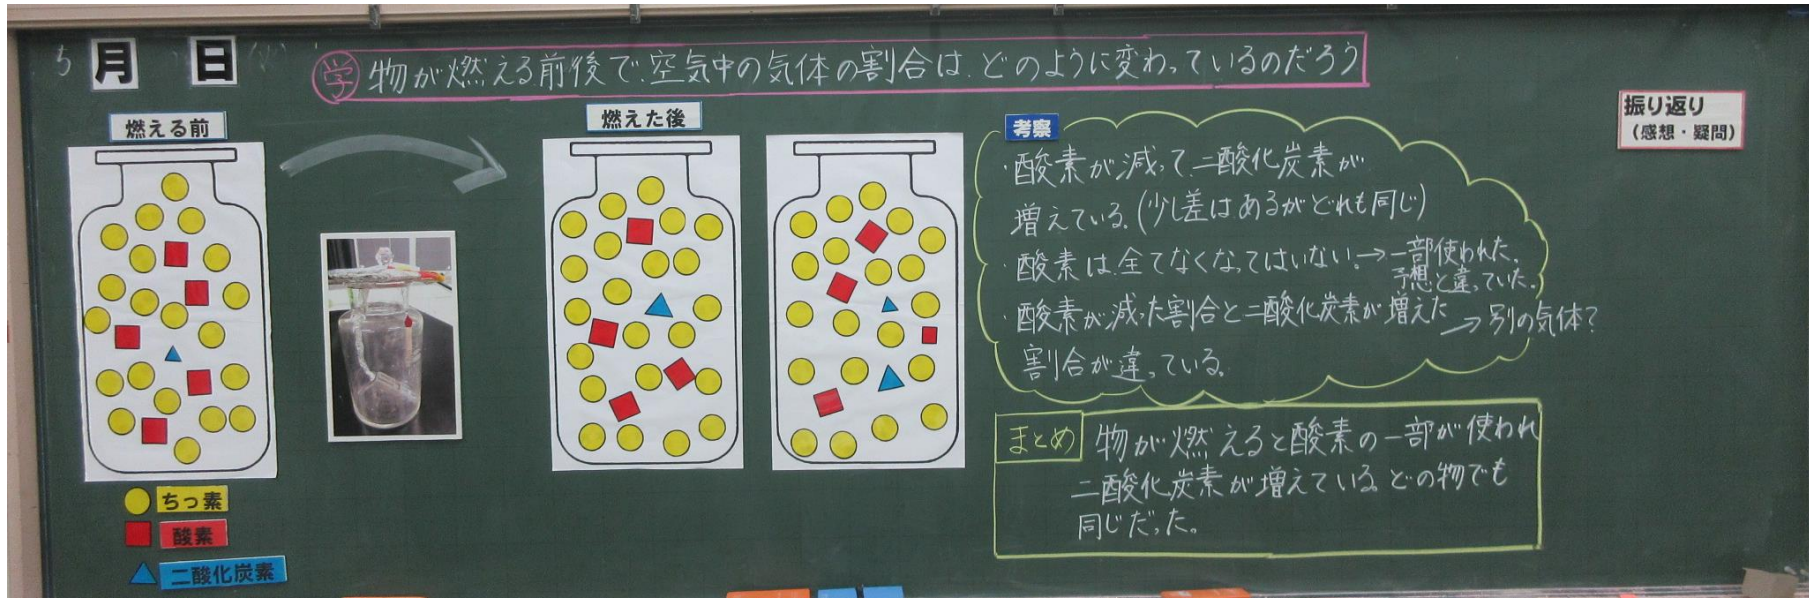 5月 日
学 物が燃える前後で、空気中の気体の割合は、どのように変わっているのだろう
燃える前
燃えた後
ちっ素
酸素
二酸化炭素
考察
・酸素が減って二酸化炭素が
増えている。(少し差はあるがどれも同じ)
・酸素は、全てなくなってはいない。→一部使われた。
予想と違っていた。
・酸素が減った割合と二酸化炭素が増えた
割合が違っている。
→別の気体?
まとめ 物が燃えると酸素の一部が使われ
二酸化炭素が増えている。どの物でも
同じだった。
振り返り
(感想・疑問)